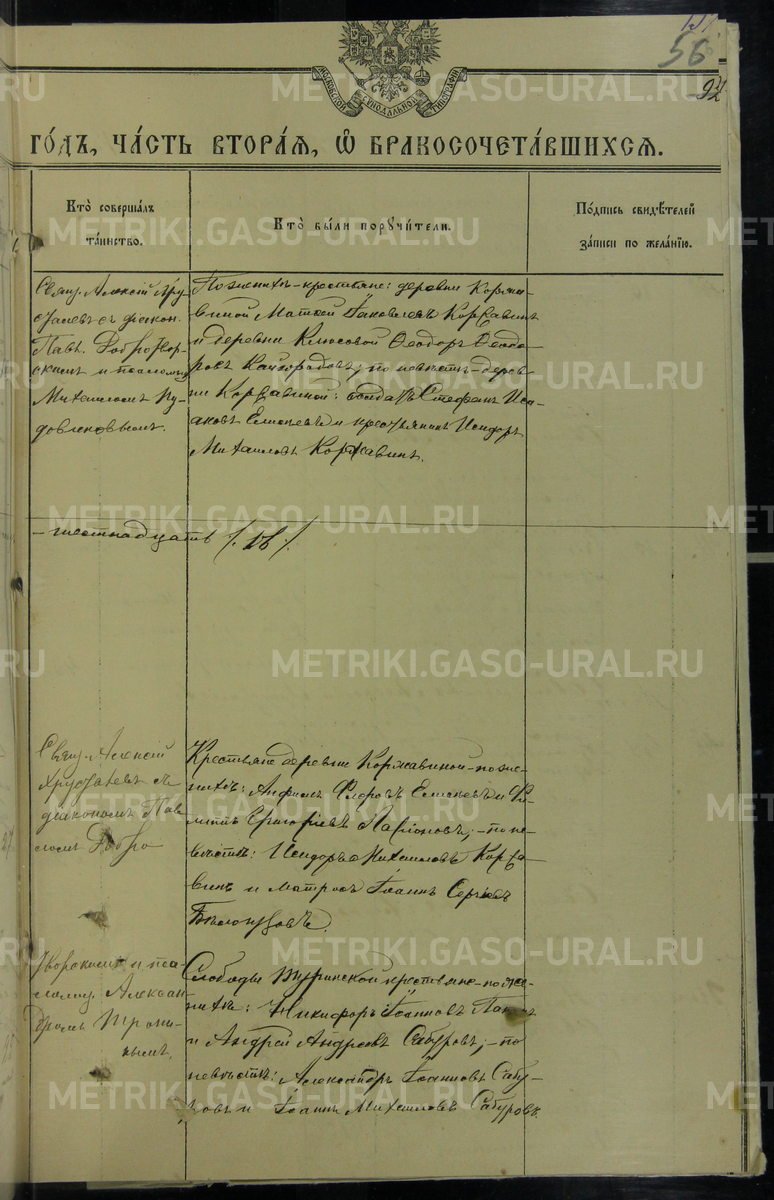 56
92
МОСКОВСКОЙ СѴНОДАЛЬНОЙ ТИПОГРАФІИ
METRIKI.GASO-URAL.RU
ГОДЪ, ЧАСТЬ ВТОРАЯ, Ѡ БРАКОСОЧЕТАВШИХСЯ.
Кто совершалъ таинство.
Кто были поручители.
Подпись свидѣтелей записи по желанію.
Свящ. Алексій Хру
сталевъ съ діакон.
Пав. Добротвор
скимъ и псаломщ.
Михаиломъ Пу-
довиковымъ.
По женихѣ-крестьяне: деревни Коржа-
виной Матѳей Іаковлевъ Коржавинъ
и деревни Ключовой Ѳеодоръ Ѳеодо-
ровъ Кайгородовъ; по невѣстѣ-дерев-
ни Коржавиной: солдатъ Стефанъ Иса-
аковъ Елисѣевъ и крестьянинъ Исидоръ
Михаиловъ Коржавинъ.
-шестнадцать /.16/.
Свящ. Алексій
Хрусталевъ съ
діакономъ Пав-
ломъ Добро
Крестьяне деревни Коржавиной-по же-
нихѣ: Анфимъ Флоровъ Елисѣевъ и Фи-
липпъ Григоріевъ Ларіоновъ;-по не-
вѣстѣ: Исидоръ Михаиловъ Коржа-
винъ и матросъ Іоаннъ Сергіевъ
Бѣлоусовъ.
творскимъ и пса-
ломщ. Алексан
дромъ Трони-
нымъ.
Слободы Туринской крестьяне-по же-
нихѣ: Никифоръ Іоанновъ
и Андрей Андреевъ Сабуровъ;-по
невѣстѣ: Александръ Іоанновъ Сабу-
ровъ и Іоаннъ Михаиловъ Сабуровъ.